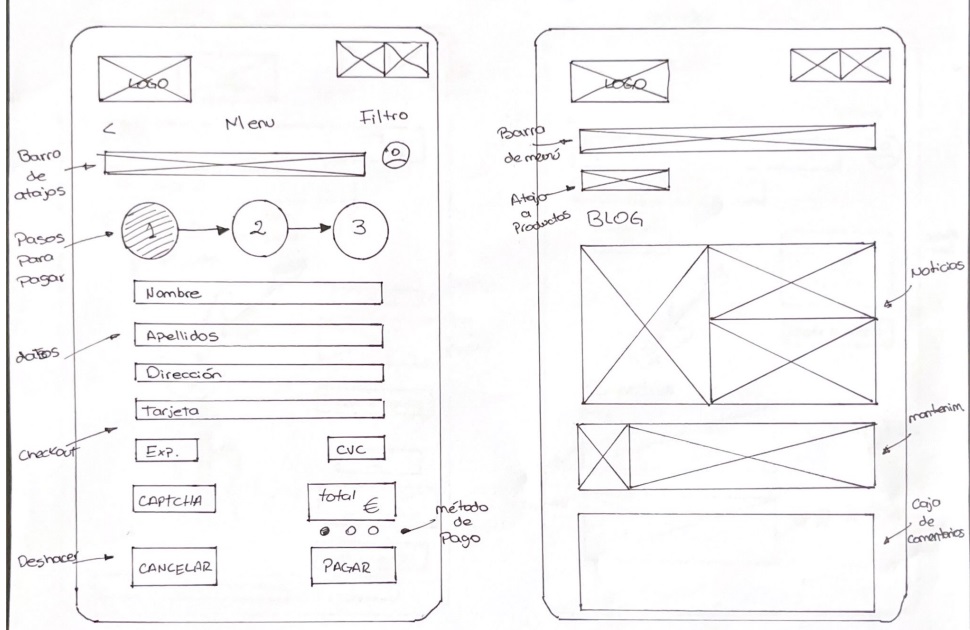 LOGO
< Menu Filtro
Barra
de
atajos
1 2 3
Pasos
Para
Pagar
Nombre
Apellidos
datos
Dirección
Tarjeta
Checkout
Exp. CVC
CAPTCHA
total
€
método
de
Pago
Deshacer
CANCELAR
PAGAR
LOGO
Barra
de menú
Atajo
a
Productos
BLOG
Noticias
mantenim.
Caja
de
Comentarios